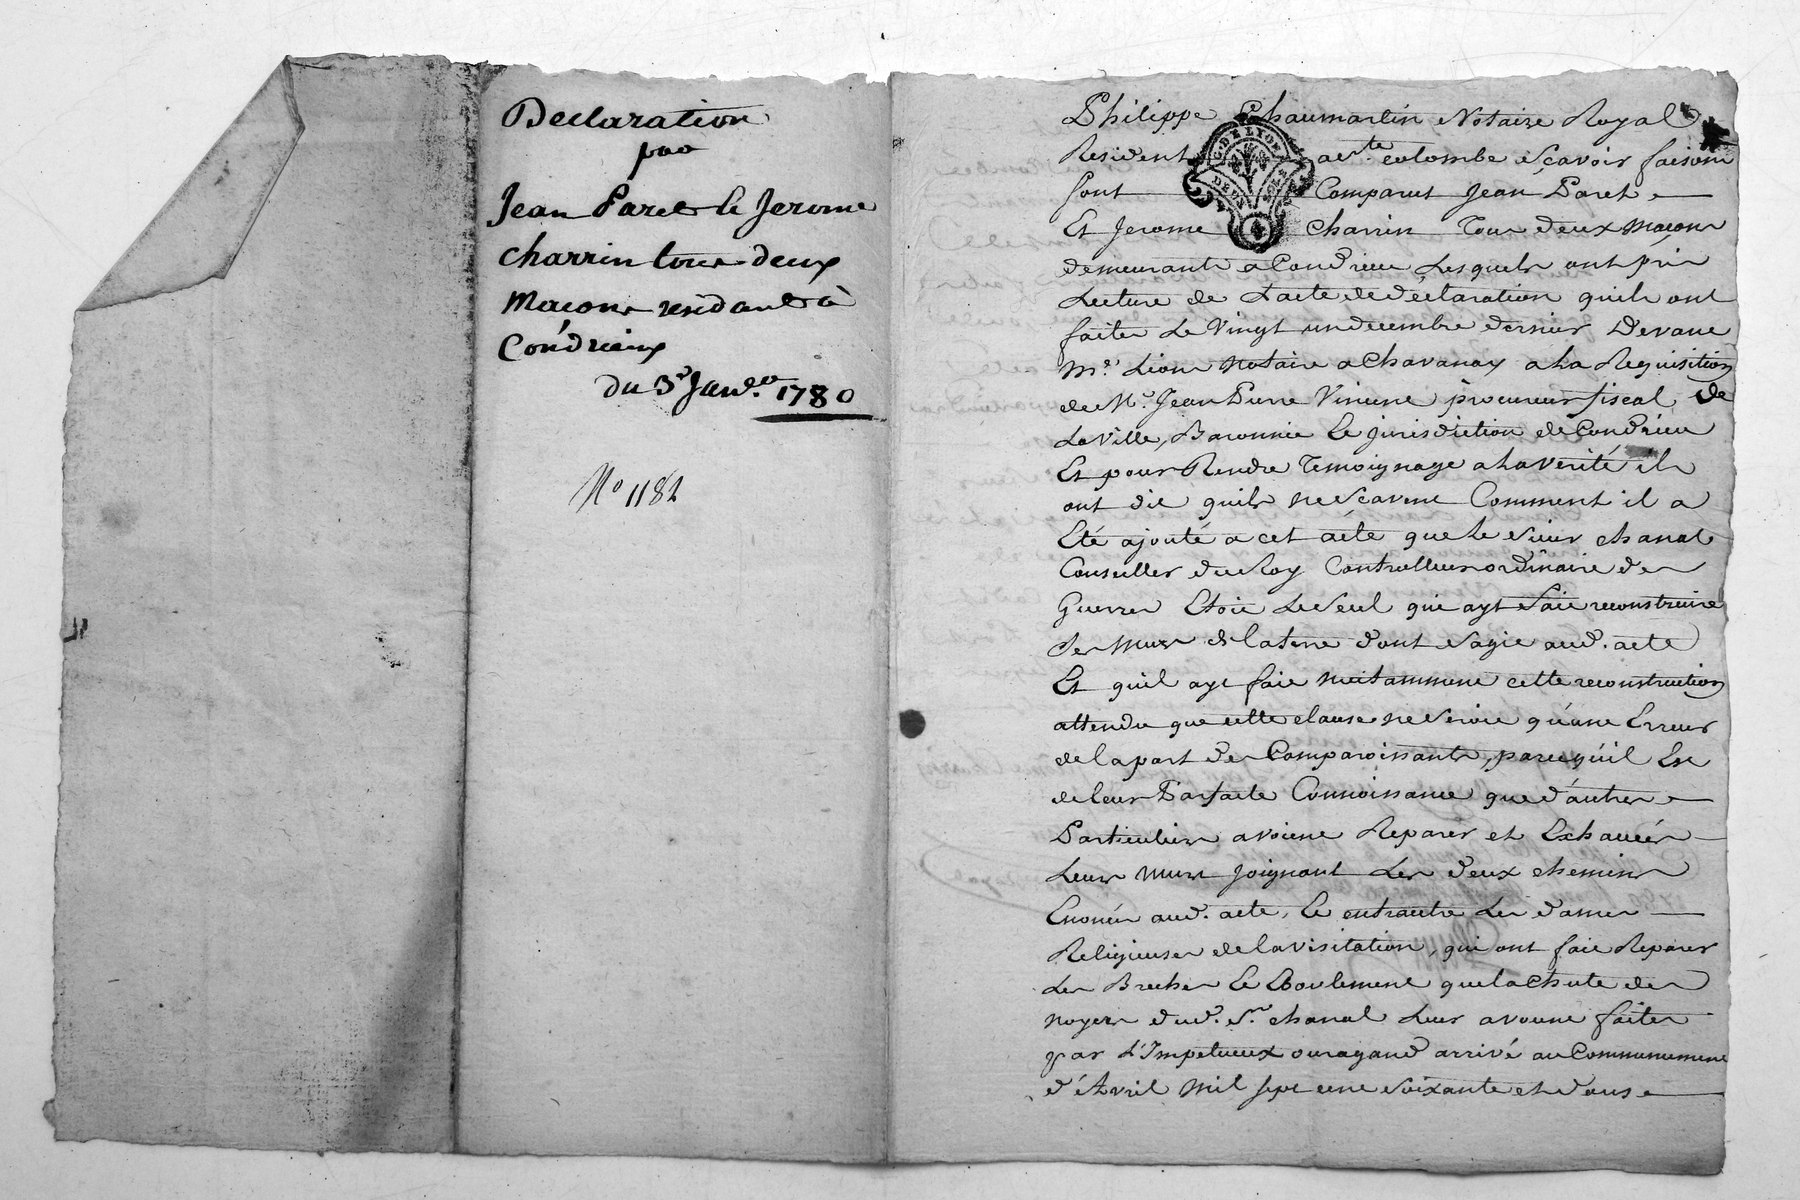 Declaration
par
Jean Paret & Jerome
charrin tous deux
Macons residants à
Condrieux
du 3e Janv.er 1780
No 1182
Philippe Chaumartin Notaire Royal
Resident a Ste. colombe sçavoir faisons
sont Comparus Jean Paret
G. DE LYON
Et Jerome Charrin Tous deux maçons
demeurants a Condrieu Lesquels ont pris
Lecture de L'acte de déclaration quils ont
faite Le Vingt un decembre dernier Devant
Me. Lion Notaire a Chavanay a La Requisition
de Mr. Jean Pierre Vincent procureur fiscal de
La Ville, Baronnie & Jurisdiction de Condrieu
Et pour Rendre Temoignage a La verité ils
ont dit quils ne scavent Comment il a
Eté ajouté a cet acte que Le sieur chanal
Conseiller du Roy Controlleur ordinaire des
Guerres Etoit Le seul qui ayt fait reconstruire
Les murs de la terre dont sagit aud. acte
Et quil ayt fait cette reconstruction
attendu que cette clause ne seroit qu'une Erreur
de la part des Comparoissants, parcequ'il Est
de leur Parfaite Connoissance que d'autres
Particuliers avoient Reparés et Exhaucés
Leurs murs Joignant Les deux chemins
Enoncés aud. acte, & entrautre Les dames
Religieuses de la visitation, qui ont fait Reparer
Les Breches & Eboulement que la Chute des
noyers dud. Sr. chanal Leur avoient faites
par L'Impetueux ouragand arrivé au Commencement
d'Avril mil sept cent soixante et douse